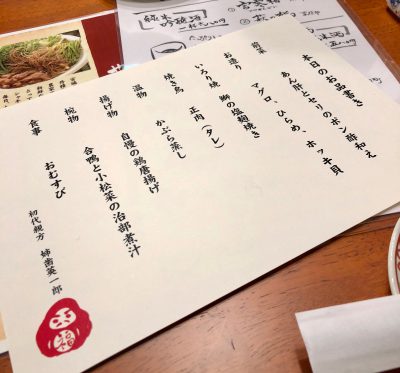 本日のお品書き
前菜　あん肝とセリのポン酢和え
お造り　マグロ、ひらめ、ホッキ貝
いろり焼　鰤の塩麹焼き
焼き鳥　正肉(タレ)
温物　かぶら蒸し
揚げ物　自慢の鶏唐揚げ
椀物　合鴨と小松菜の治部煮汁
食事　おむすび
初代親方　姉歯英一郎
純米
吟醸酒